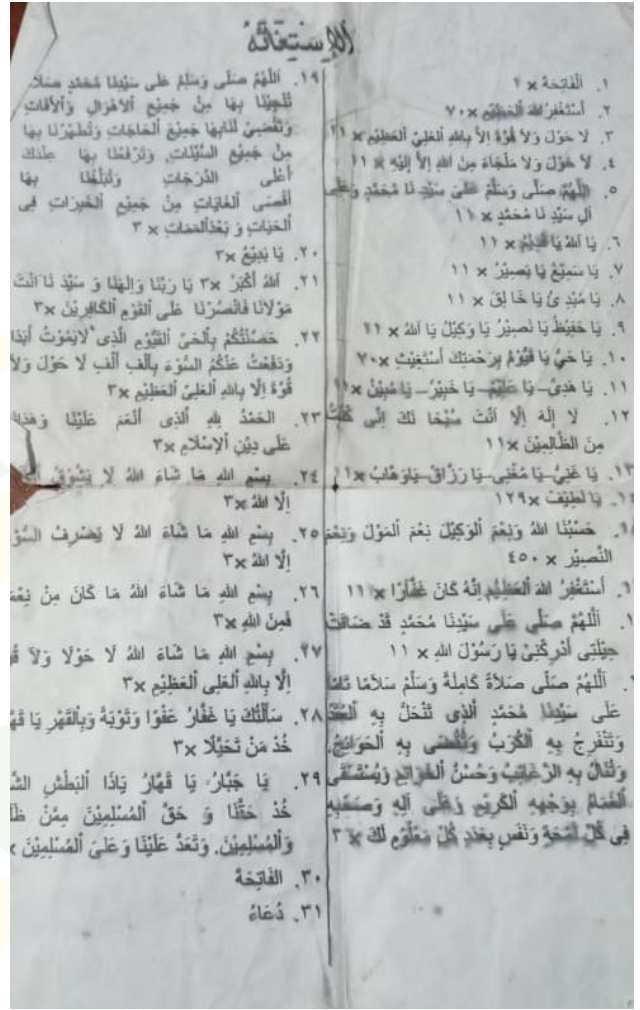 اَلْإِسْتِغَاثَةُ
١. اَلْفَاتِحَة × ١
٢. أَسْتَغْفِرُ اللهَ الْعَظِيْمَ × ٧٠
٣. لَا حَوْلَ وَلَا قُوَّةَ إِلَّا بِاللهِ الْعَلِيِّ الْعَظِيْمِ × ٢١
٤. لَا حَوْلَ وَلَا مَلْجَاءَ مِنَ اللهِ إِلَّا إِلَيْهِ × ١١
٥. اَللّٰهُمَّ صَلِّى وَسَلِّمْ عَلَى سَيِّدِ نَا مُحَمَّدٍ وَعَلَى
آلِ سَيِّدِ نَا مُحَمَّدٍ × ١١
٦. يَا اَللهُ يَا قَدِيْمُ × ١١
٧. يَا سَمِيْعُ يَا بَصِيْرُ × ١١
٨. يَا مُبْدِ ئُ يَا خَا لِقُ × ١١
٩. يَا حَفِيْظُ يَا نَصِيْرُ يَا وَكِيْلُ يَا اَللهُ × ١١
١٠. يَا حَيُّ يَا قَيُّوْمُ بِرَحْمَتِكَ أَسْتَغِيْثُ × ٧٠
١١. يَا هَدِىْ – يَا عَلِيْمُ – يَا خَبِيْرُ – يَا مُبِيْنُ × ١١
١٢. لَا إِلٰهَ إِلَّا أَنْتَ سُبْحَا نَكَ اِنِّى كُنْتُ
مِنَ الظَّالِمِيْنَ × ١١
١٣. يَا غَنِيُّ – يَا مُغْنِى – يَا رَزَّاقُ – يَاوَهَّابُ × ١١
يَا لَطِيْفُ × ١٢٩
حَسْبُنَا اللهُ وَنِعْمَ الْوَكِيْلُ نِعْمَ الْمَوْلَ وَنِعْمَ
النَّصِيْر × ٤٥٠
أَسْتَغْفِرُ اللهَ الْعَظِيْمَ إِنَّهُ كَانَ غَفَّارًا × ١١
اَللّٰهُمَّ صَلِّى عَلَى سَيِّدِنَا مُحَمَّدٍ قَدْ ضَاقَتْ
حِيْلَتِى أَدْرِكْنِىْ يَا رَسُوْلَ اللهِ × ١١
اَللّٰهُمَّ صَلِّى صَلَاةً كَامِلَةً وَسَلِّمْ سَلَامًا تَامًّا
عَلَى سَيِّدِنَا مُحَمَّدٍ الَّذِى تَنْحَلُّ بِهِ الْعُقَدُ
وَتَنْفَرِجُ بِهِ الْكُرَبُ وَتُقْضَى بِهِ الْحَوَائِجُ
وَتُنَالُ بِهِ الرَّغَائِبُ وَحُسْنُ الْخَوَاتِمِ وَيُسْتَسْقَى
الْغَمَامُ بِوَجْهِهِ الْكَرِيْمِ وَعَلَى آلِهِ وَصَحْبِهِ
فِى كُلِّ لَمْحَةٍ وَنَفَسٍ بِعَدَدِ كُلِّ مَعْلُوْمٍ لَكَ × ٣
١٩. اَللّٰهُمَّ صَلِّى وَسَلِّمْ عَلَى سَيِّدِنَا مُحَمَّدٍ صَلَاةً
تُنْجِيْنَا بِهَا مِنْ جَمِيْعِ الْأَهْوَالِ وَالْأَفَاتِ
وَتَقْضِىْ لَنَابِهَا جَمِيْعَ الْحَاجَاتِ وَتُطَهِّرُنَا بِهَا
مِنْ جَمِيْعِ السَّيِّئَاتِ. وَتَرْفَعُنَا بِهَا عِنْدَكَ
أَعْلَى الدَّرَجَاتِ وَتُبَلِّغُنَا بِهَا
أَقْصَى الْغَايَاتِ مِنْ جَمِيْعِ الْخَيْرَاتِ فِى
الْحَيَاتِ وَ بَعْدَالْمَمَاتِ × ٣
٢٠. يَا بَدِيْعُ × ٣
٢١. اَللهُ أَكْبَرُ × ٣ يَا رَبَّنَا وَاِلٰهَنَا وَ سَيِّدَ نَا أَنْتَ
مَوْلَانَا فَانْصُرْنَا عَلَى الْقَوْمِ الْكَافِرِيْنَ × ٣
٢٢. حَصَّنْتُكُمْ بِالْحَيِّ الْقَيُّوْمِ الَّذِى لَايَمُوْتُ أَبَدًا
وَدَفَعْتُ عَنْكُمُ السُّوْءَ بِأَلْفِ أَلْفِ لَا حَوْلَ وَلَا
قُوَّةَ اِلَّا بِاللهِ الْعَلِىِّ الْعَظِيْمِ × ٣
٢٣. اَلْحَمْدُ للهِ الَّذِى أَنْعَمَ عَلَيْنَا وَهَدَانَا
عَلَى دِيْنِ الْإِسْلَامِ × ٣
٢٤. بِسْمِ اللهِ مَا شَاءَ اللهُ لَا يَسُوْقُ
إِلَّا اللهُ × ٣
٢٥. بِسْمِ اللهِ مَا شَاءَ اللهُ لَا يَصْرِفُ السُّوْ
إِلَّا اللهُ × ٣
٢٦. بِسْمِ اللهِ مَا شَاءَ اللهُ مَا كَانَ مِنْ نِعْمَ
فَمِنَ اللهِ × ٣
٢٧. بِسْمِ اللهِ مَا شَاءَ اللهُ لَا حَوْلَا وَلَا قُ
اِلَّا بِاللهِ الْعَلِى الْعَظِيْمِ × ٣
٢٨. سَأَلْتُكَ يَا غَفَّارُ عَفْوًا وَتَوْبَةً وَبِالْقَهْرِ يَا قَهَّ
خُذْ مَنْ تَحَيَّلَا × ٣
٢٩. يَا جَبَّارُ يَا قَهَّارُ يَاذَا الْبَطْشِ الشَّ
خُذْ حَقَّنَا وَ حَقَّ الْمُسْلِمِيْنَ مِمَّنْ ظَلَ
وَالْمُسْلِمِيْنَ. وَتَعَدَّ عَلَيْنَا وَعَلَى الْمُسْلِمِيْنَ ×
٣٠. اَلْفَاتِحَةُ
٣١. دُعَاءُ